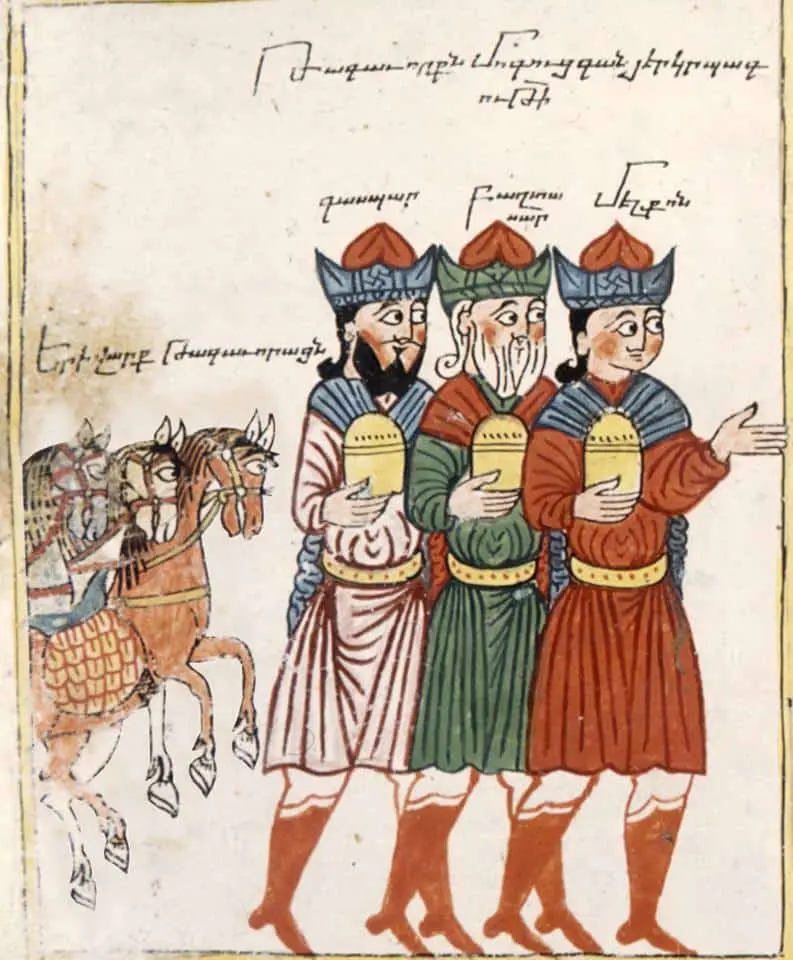 Թագաւորքն Մոգուց գան յերկրպագ
ութի
գասպար
բաղտա
սար
Մելքոն
Երիվարք Թագաւորացն